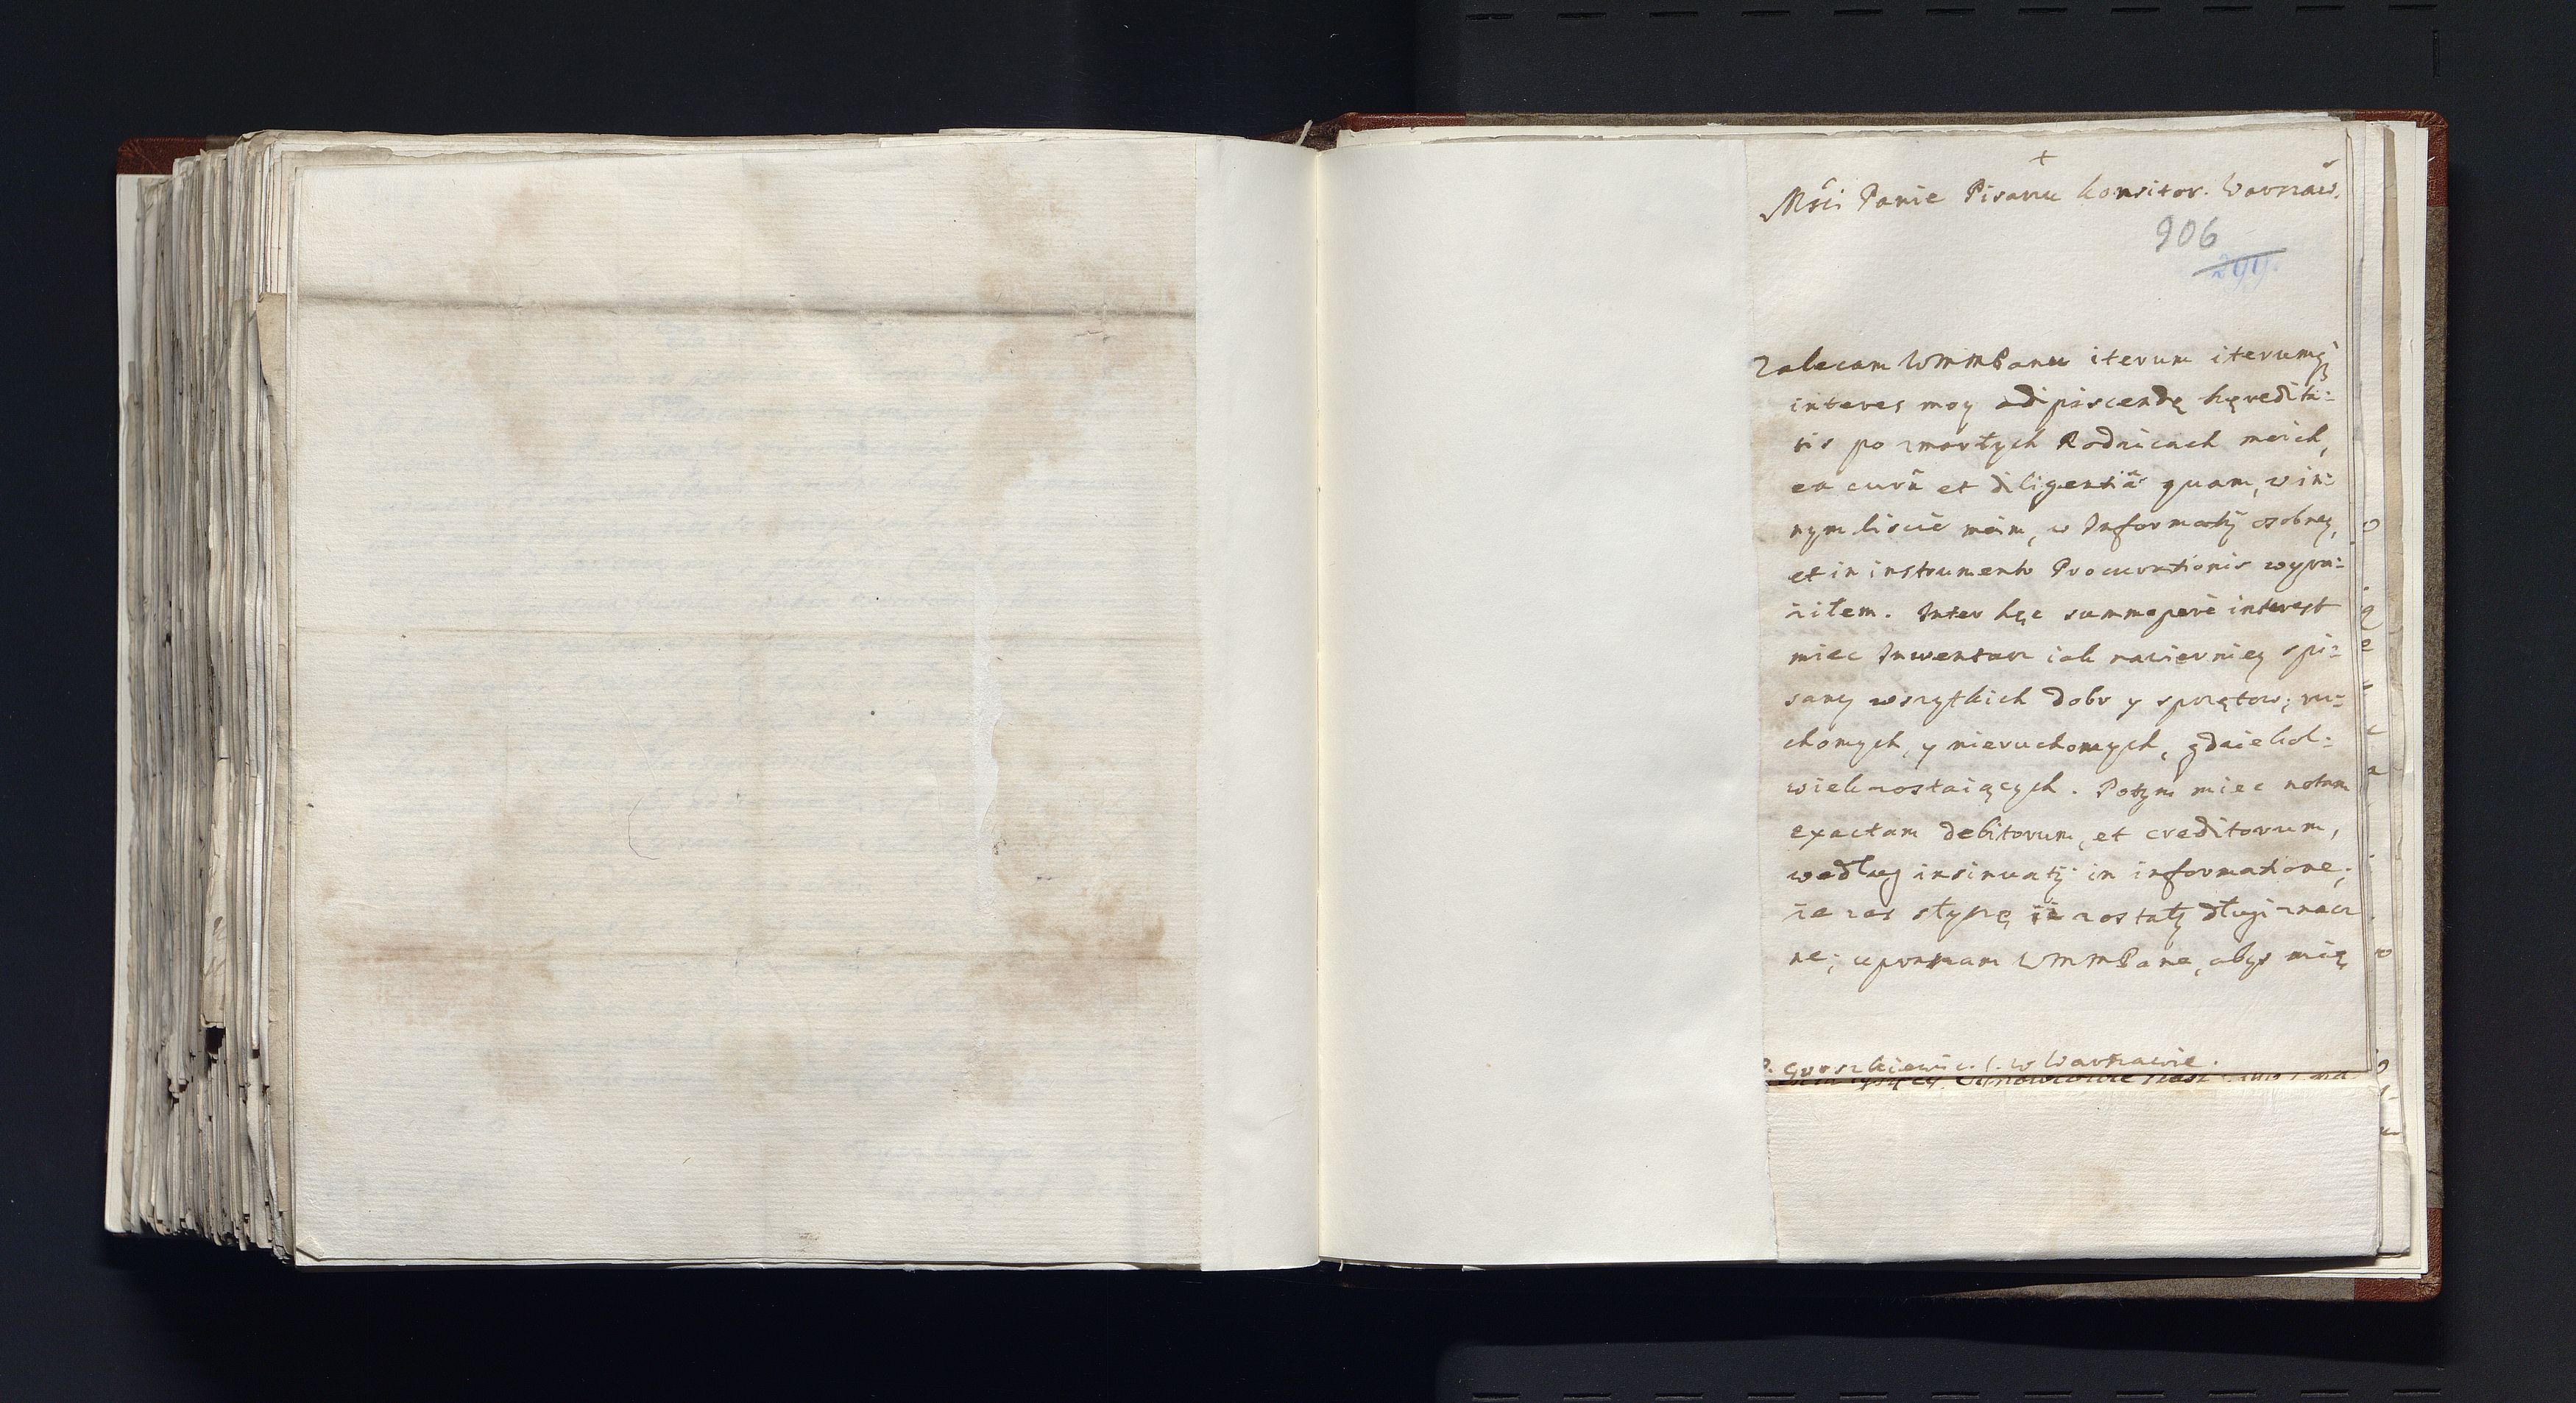 +
Mści Panie Pisarzu Konsitor. Warszaw.
906
299.
Zalecam WMMPanu iterum iterumq
interes moy adipiscendę hęredita:
tis po zmarłych Rodzicach moich,
ea curâ et diligentiâ quam, w in:
nym liscie moim, w Informatij osobney,
et in instrumento Procurationis wyra:
ziłem. Inter hęc summopere interest
miec Inwentarz iak nawierniey spi:
sany wszytkich dobr y sprzętow; ru:
chomych, y nieruchomych, gdziekol:
wiek zostaiących. Potym miec notam
exactam debitorum, et creditorum,
według insinuatij in informatione;
ze zas słyszę iż zostały długi znacz
ne; upraszam WMMPana, abys mię
P. Gorszkiewicz. w Warszawie.